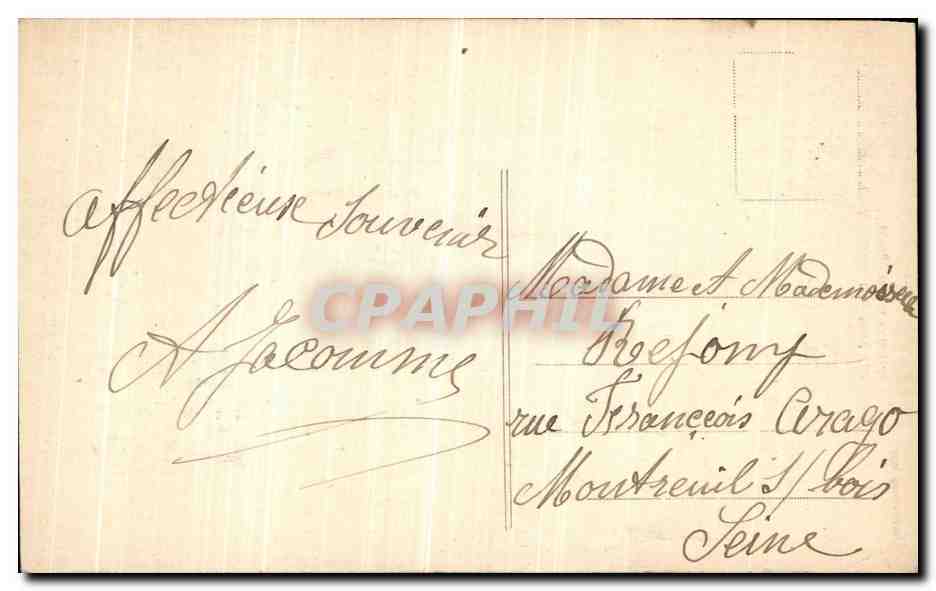 Affectieuse Souvenir
A Jacomme
Madame et Mademoiselle
Rejony
rue Françcois Arago
Montreuil s/ bois
Seine
CPAPHIL